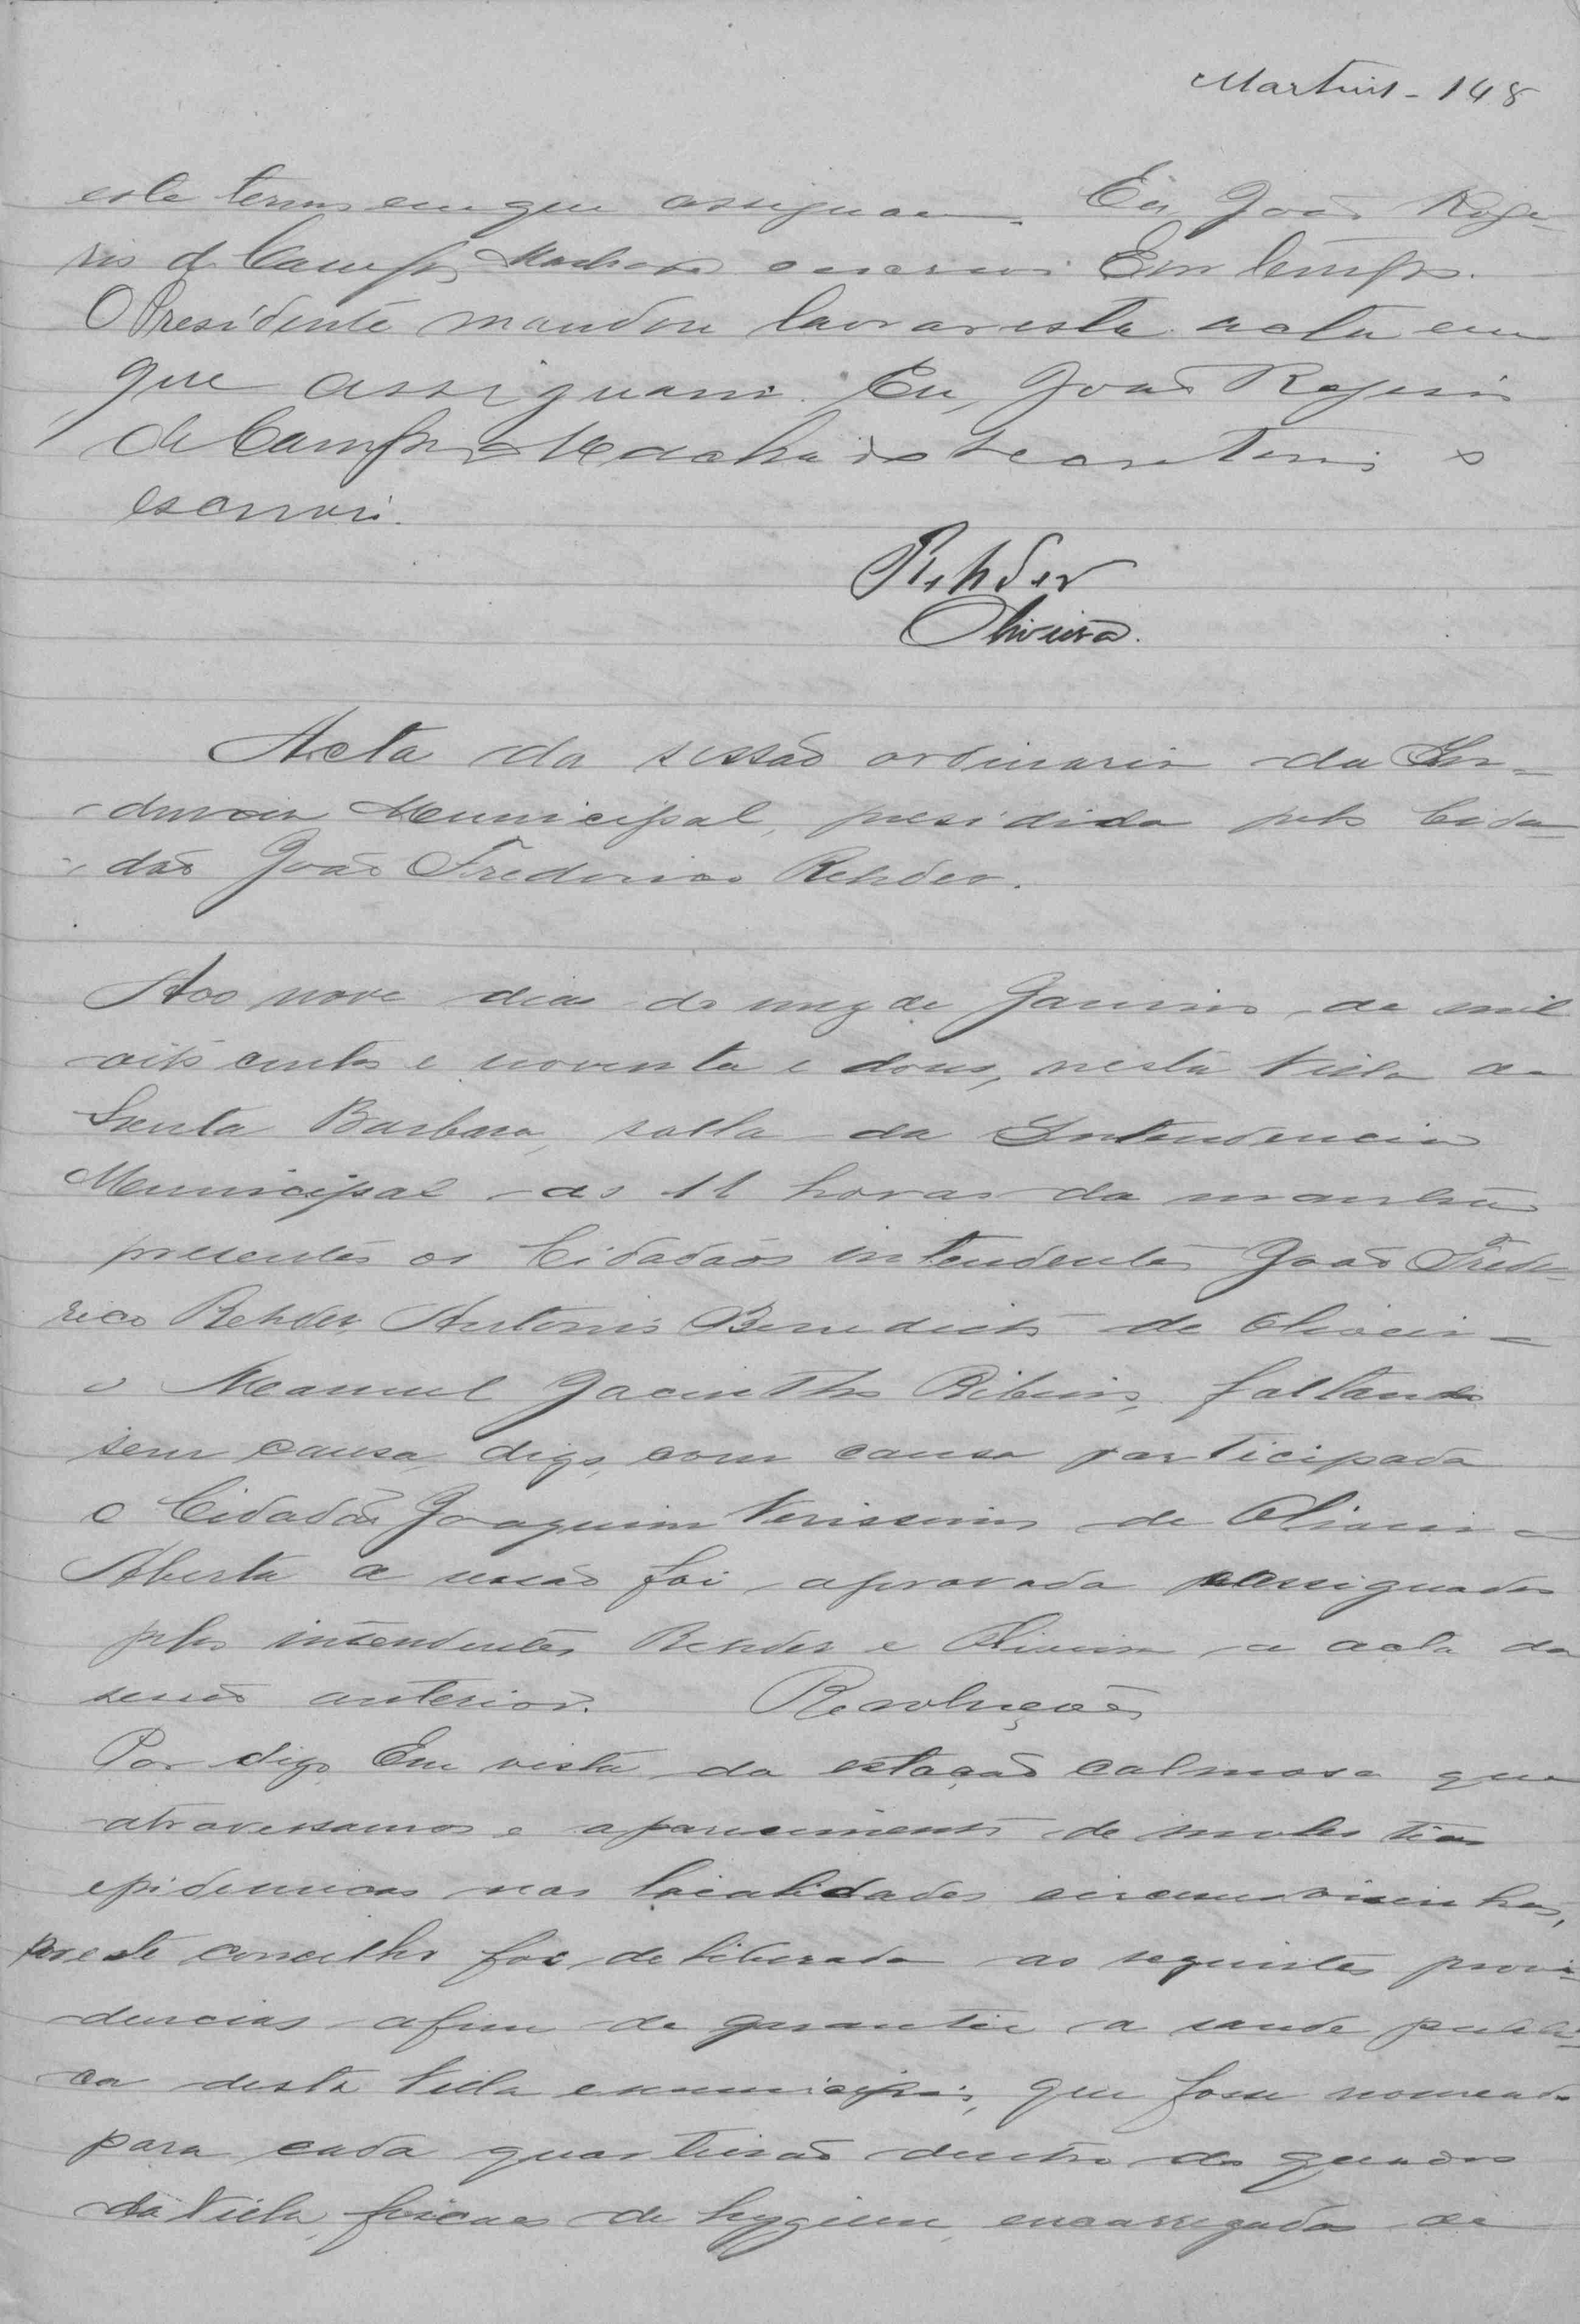 Martins - 148
este termo em que assignam. Eu João Roge-
rio de Campos Machado escrevi. Em tempo.
O Presidente mandou lavrar esta acta em
que assignam. Eu, João Rogerio
de Campos Machado secretario o
escrevi.
Rehder
Oliveira.
Acta da sessão ordinaria da In-
dencia Municipal, presidida pelo Cida-
dão João Frederico Rehder.
Aos nove dias do mez de Janeiro de mil
oito centos e noventa e dous, nesta Villa de
Santa Barbara, salla da Intendencia
Municipal as 11 horas da manhã
presentes os Cidadãos intendentes João Frede-
rico Rehder, Antonio Benedicto de Oliveira
e Manuel Jacintho Ribeiro, faltando
sem causa, digo, com causa participada
o Cidadão Joaquim Verissimo de Oliveira
Aberta a sessão foi aprovada assignada
pelos intendentes Rehder e Oliveira a acta da
sessão anterior. Resoluções
Por digo Em vista da estação calmosa que
atravessamos e aparecimento de molestias
epidemicas nas localidades circumvisinhas,
por este concelho foi deliberada as seguintes provi-
dencias afim de garantir a saude publi-
ca desta Villa e municipio, que fosse nomeado
para cada quarteirão dentro do quadro
da Villa, fiscaes de hygiene, encarregados de